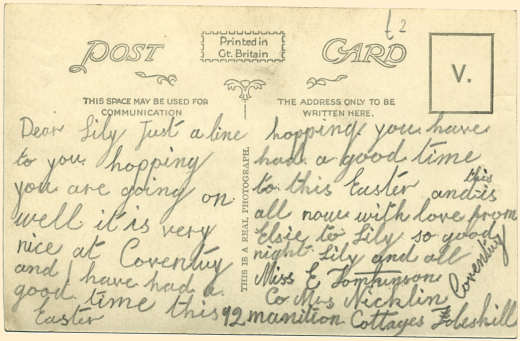 £2
POST CARD
Printed in
Gt. Britain
V.
THIS SPACE MAY BE USED FOR
COMMUNICATION
THE ADDRESS ONLY TO BE
WRITTEN HERE.
THIS IS A REAL PHOTOGRAPH.
Dear Lily Just a line
to you hopping
you are going on
well it is very
nice at Coventuy
and I have had a
good time this
Easter
hopping you have
had a good time
to this Easter and this is
all now with love from
Elsie to Lily so good
night Lily and all
Miss E Tomkinson
Co Mrs Nicklin
92 manition Cottages Foleshill
Coventuy